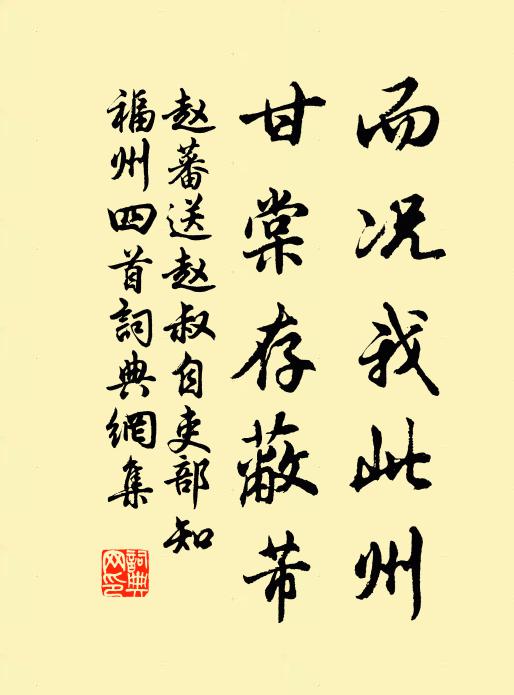 而况我此州
甘棠存蔽芾
赵蕃送赵叔自吏部知
福州四首詞典網集
詞典网印